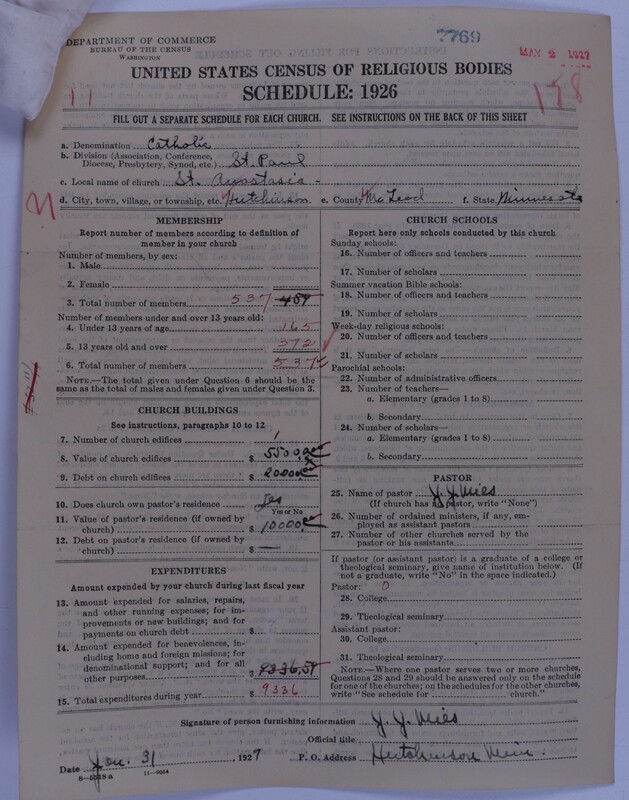 DEPARTMENT OF COMMERCE
BUREAU OF THE CENSUS
WASHINGTON
7769
MAY 2 1927
UNITED STATES CENSUS OF RELIGIOUS BODIES
SCHEDULE: 1926
11
178
FILL OUT A SEPARATE SCHEDULE FOR EACH CHURCH. SEE INSTRUCTIONS ON THE BACK OF THIS SHEET
a. Denomination Catholic
b. Division (Association, Conference, Diocese, Presbytery, Synod, etc.) St. Paul
c. Local name of church St. Anastasia
d. City, town, village, or township, etc. Hutchinson e. County McLeod f. State Minnesota
MEMBERSHIP
Report number of members according to definition of member in your church
Number of members, by sex:
1. Male
2. Female
3. Total number of members 537 459
Number of members under and over 13 years old:
4. Under 13 years of age 165
5. 13 years old and over 372
6. Total number of members 537
NOTE.—The total given under Question 6 should be the same as the total of males and females given under Question 3.
CHURCH BUILDINGS
See instructions, paragraphs 10 to 12
7. Number of church edifices 1
8. Value of church edifices $ 55000.00
9. Debt on church edifices $ 20000.00
10. Does church own pastor's residence Yes
Yes or No
11. Value of pastor's residence (if owned by church) $ 10000.00
12. Debt on pastor's residence (if owned by church) $ —
EXPENDITURES
Amount expended by your church during last fiscal year
13. Amount expended for salaries, repairs, and other running expenses; for improvements or new buildings; and for payments on church debt $
14. Amount expended for benevolences, including home and foreign missions; for denominational support; and for all other purposes $ 9336.59
15. Total expenditures during year $ 9336
CHURCH SCHOOLS
Report here only schools conducted by this church
Sunday schools:
16. Number of officers and teachers
17. Number of scholars
Summer vacation Bible schools:
18. Number of officers and teachers
19. Number of scholars
Week-day religious schools:
20. Number of officers and teachers
21. Number of scholars
Parochial schools:
22. Number of administrative officers
23. Number of teachers—
a. Elementary (grades 1 to 8)
b. Secondary
24. Number of scholars—
a. Elementary (grades 1 to 8)
b. Secondary
PASTOR
25. Name of pastor J. J. Mies
(If church has no pastor, write "None")
26. Number of ordained ministers, if any, employed as assistant pastors
27. Number of other churches served by the pastor or his assistants
If pastor (or assistant pastor) is a graduate of a college or theological seminary, give name of institution below. (If not a graduate, write "No" in the space indicated.)
Pastor: 0
28. College
29. Theological seminary
Assistant pastor:
30. College
31. Theological seminary
NOTE.—Where one pastor serves two or more churches, Questions 28 and 29 should be answered only on the schedule for one of the churches; on the schedules for the other churches, write "See schedule for church."
Signature of person furnishing information J. J. Mies
Official title
Date Jan. 31, 1927 P. O. Address Hutchinson Minn.
8—5518a 11—9064